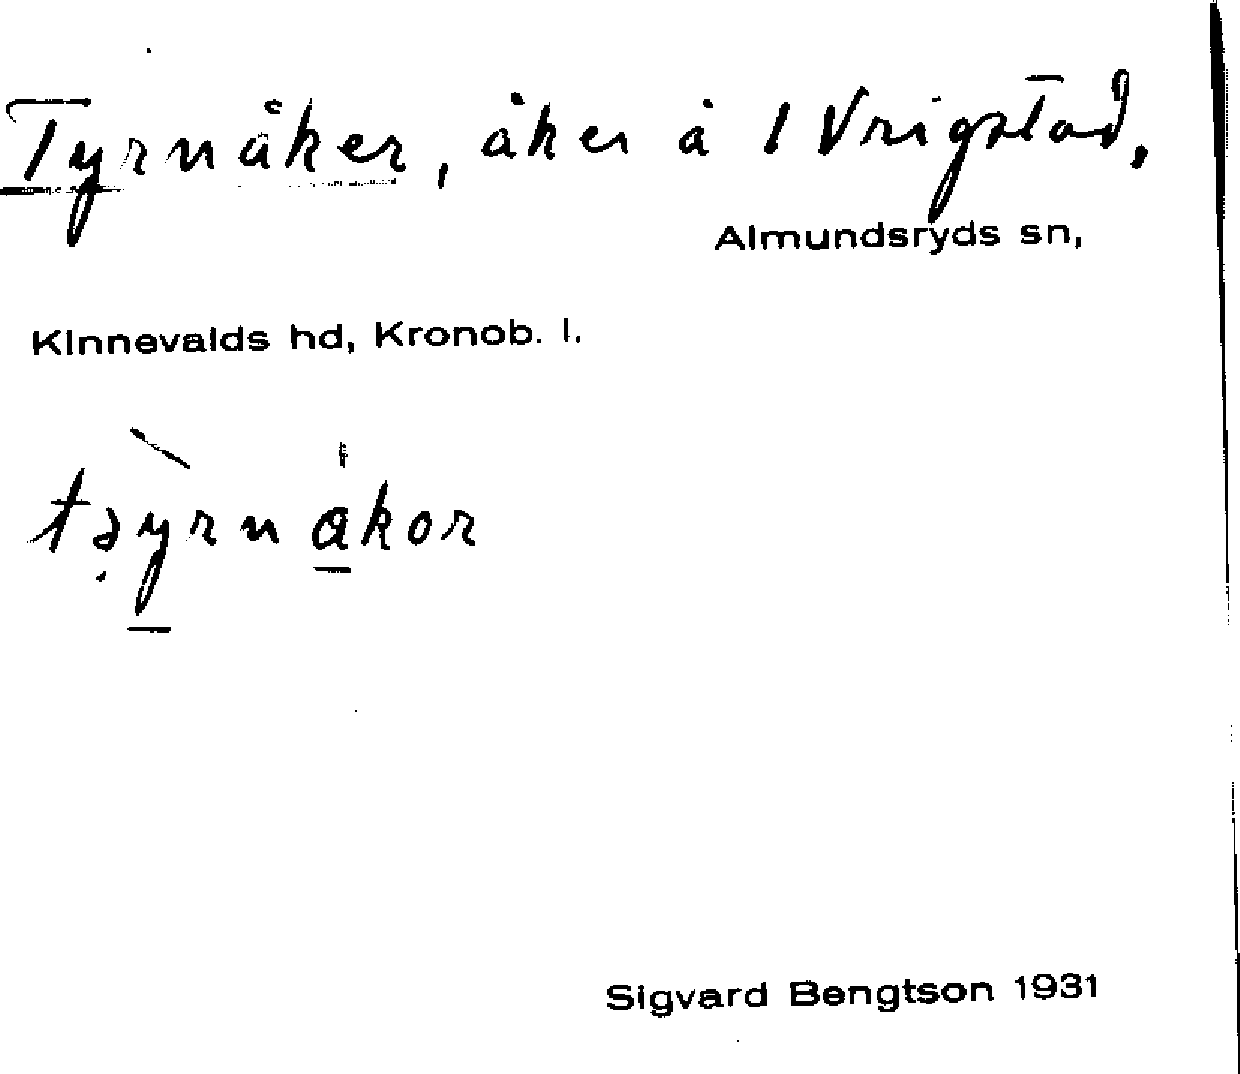 Tyrnåker, åker å 1 Vrigstad,
Almundsryds sn,
Kinnevalds hd, Kronob. l.
təyrnakor
Sigvard Bengtson 1931